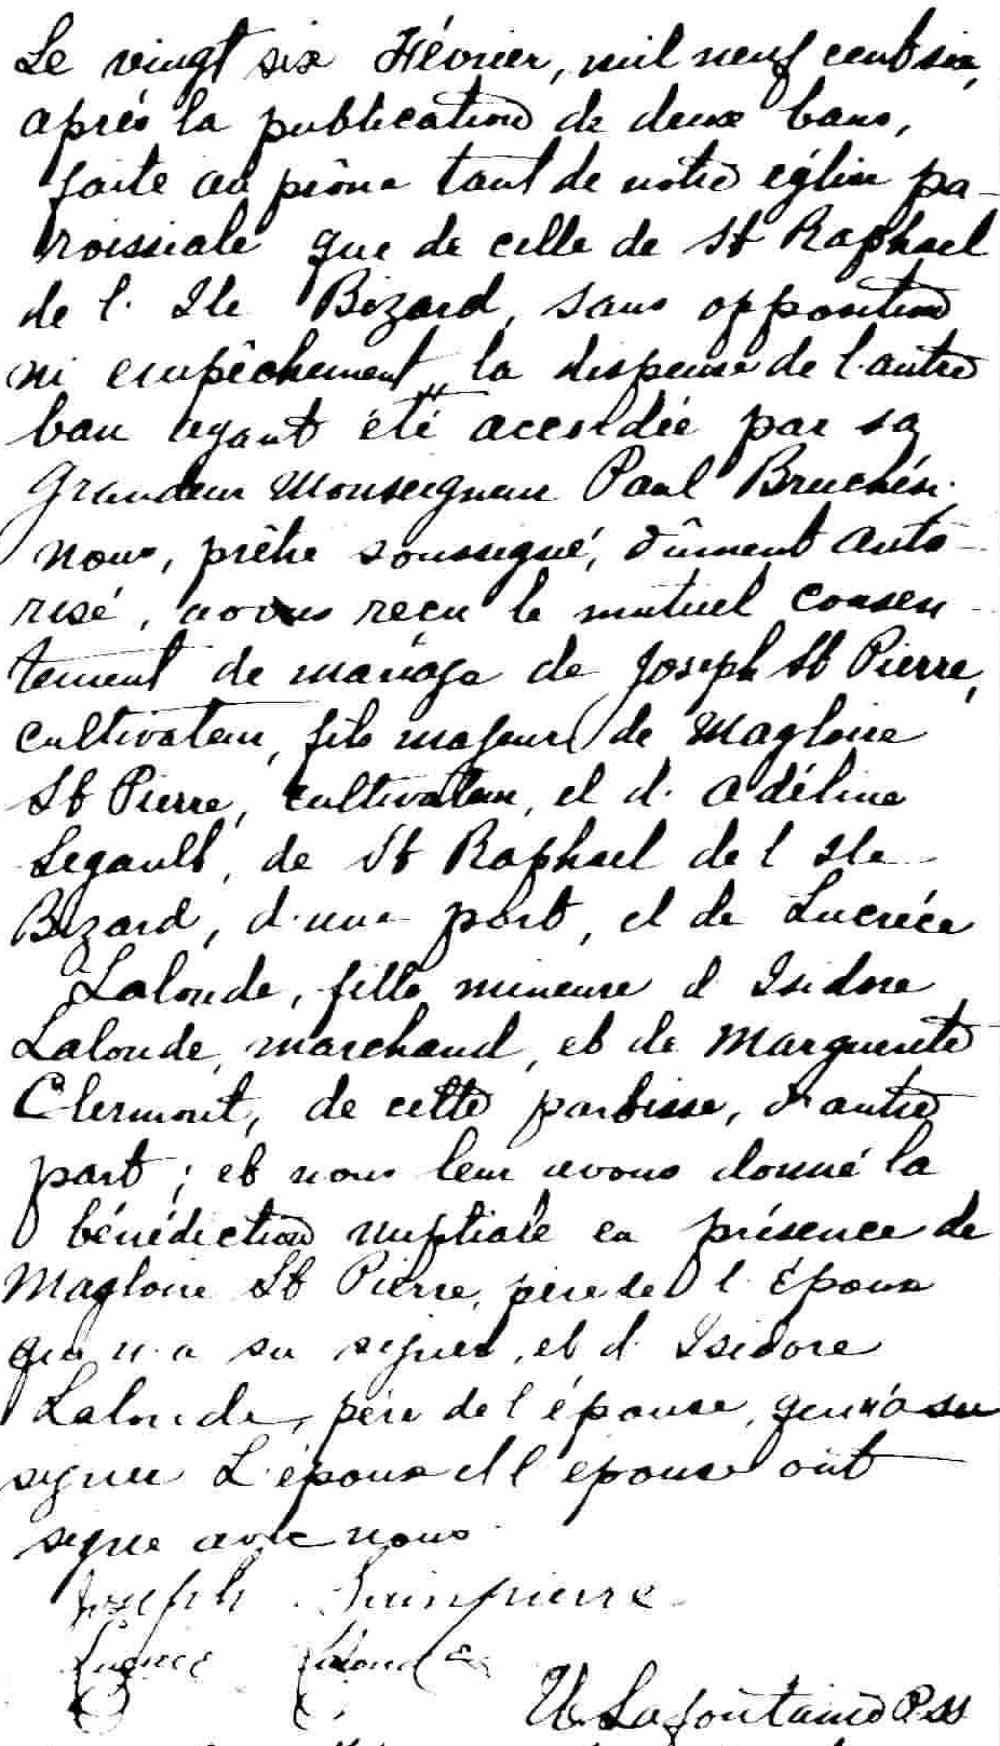 Le vingt six Février, mil neuf cent six,
après la publication de deux bans,
faite au prône tant de notre église pa-
roissiale que de celle de St Raphael
de l'Ile Bizard, sans opposition
ni empêchement, la dispense de l'autre
ban ayant été accordée par sa
Grandeur Monseigneur Paul Bruchési,
nous, prêtre soussigné, dûment auto-
risé, avons reçu le mutuel consen-
tement de mariage de Joseph St Pierre,
cultivateur, fils majeur de Magloire
St Pierre, cultivateur, et d'Adéline
Legault, de St Raphael de l'Ile
Bizard, d'une part, et de Lucrèce
Lalonde, fille mineure d'Isidore
Lalonde, marchand, et de Marguerite
Clermont, de cette paroisse, d'autre
part; et nous leur avons donné la
bénédiction nuptiale en présence de
Magloire St Pierre, père de l'époux
qui n'a su signer, et d'Isidore
Lalonde, père de l'épouse, qui n'a su
signer L'époux et l'épouse ont
signé avec nous.
Joseph Sainpierre
Lucrèce Lalonde
Lafontaine Pss